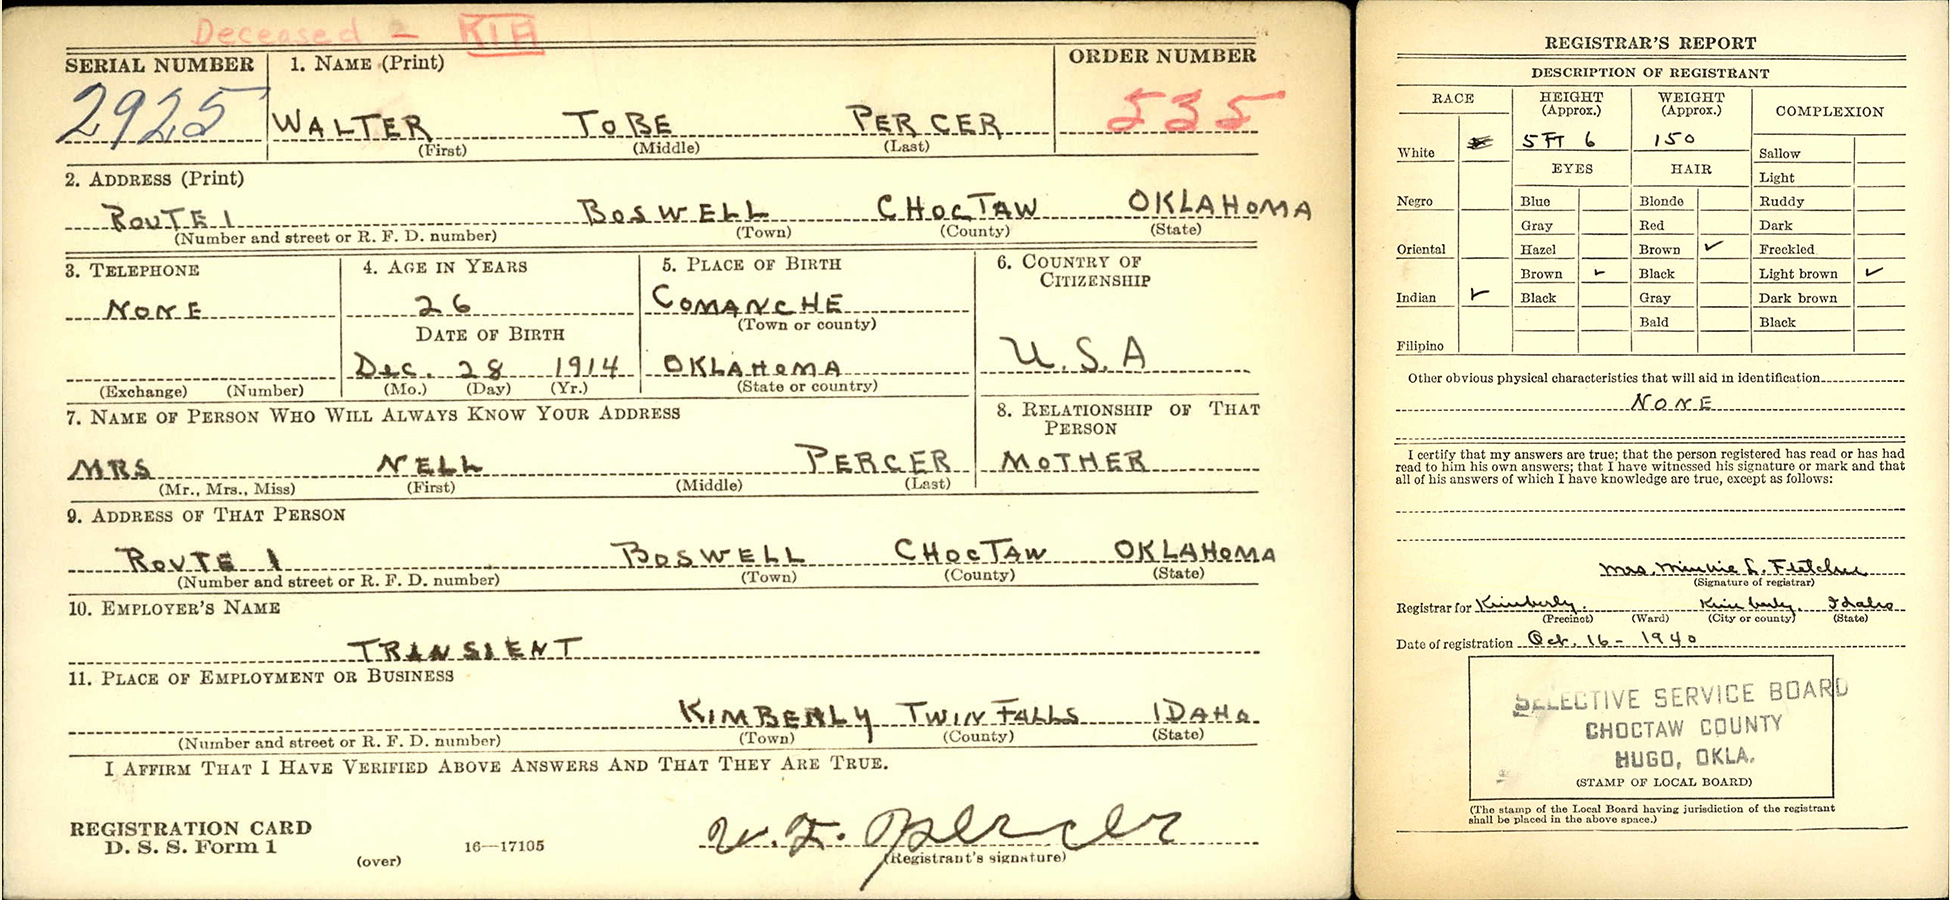 Deceased - KIA
SERIAL NUMBER 1. NAME (Print) ORDER NUMBER
2925 WALTER TOBE PERCER 535
(First) (Middle) (Last)
2. ADDRESS (Print)
ROUTE 1 BOSWELL CHOCTAW OKLAHOMA
(Number and street or R. F. D. number) (Town) (County) (State)
3. TELEPHONE 4. AGE IN YEARS 5. PLACE OF BIRTH 6. COUNTRY OF CITIZENSHIP
NONE 26 COMANCHE
(Town or county)
DATE OF BIRTH U.S.A
Dec. 28 1914 OKLAHOMA
(Exchange) (Number) (Mo.) (Day) (Yr.) (State or country)
7. NAME OF PERSON WHO WILL ALWAYS KNOW YOUR ADDRESS 8. RELATIONSHIP OF THAT PERSON
MRS NELL PERCER MOTHER
(Mr., Mrs., Miss) (First) (Middle) (Last)
9. ADDRESS OF THAT PERSON
ROUTE 1 BOSWELL CHOCTAW OKLAHOMA
(Number and street or R. F. D. number) (Town) (County) (State)
10. EMPLOYER'S NAME
TRANSIENT
11. PLACE OF EMPLOYMENT OR BUSINESS
KIMBERLY TWIN FALLS IDAHO
(Number and street or R. F. D. number) (Town) (County) (State)
I AFFIRM THAT I HAVE VERIFIED ABOVE ANSWERS AND THAT THEY ARE TRUE.
REGISTRATION CARD
D. S. S. Form 1 16—17105 W. T. Percer
(over) (Registrant's signature)
REGISTRAR'S REPORT
DESCRIPTION OF REGISTRANT
RACE HEIGHT (Approx.) WEIGHT (Approx.) COMPLEXION
White 5 FT 6 150 Sallow
EYES HAIR Light
Negro Blue Blonde Ruddy
Gray Red Dark
Oriental Hazel Brown ✓ Freckled
Brown ✓ Black Light brown ✓
Indian ✓ Black Gray Dark brown
Bald Black
Filipino
Other obvious physical characteristics that will aid in identification
NONE
I certify that my answers are true; that the person registered has read or has had
read to him his own answers; that I have witnessed his signature or mark and that
all of his answers of which I have knowledge are true, except as follows:
Mrs. Minnie L. Fletcher
(Signature of registrar)
Registrar for Kimberly. Kimberly. Idaho
(Precinct) (Ward) (City or county) (State)
Date of registration Oct. 16 - 1940
SELECTIVE SERVICE BOARD
CHOCTAW COUNTY
HUGO, OKLA.
(STAMP OF LOCAL BOARD)
(The stamp of the Local Board having jurisdiction of the registrant
shall be placed in the above space.)